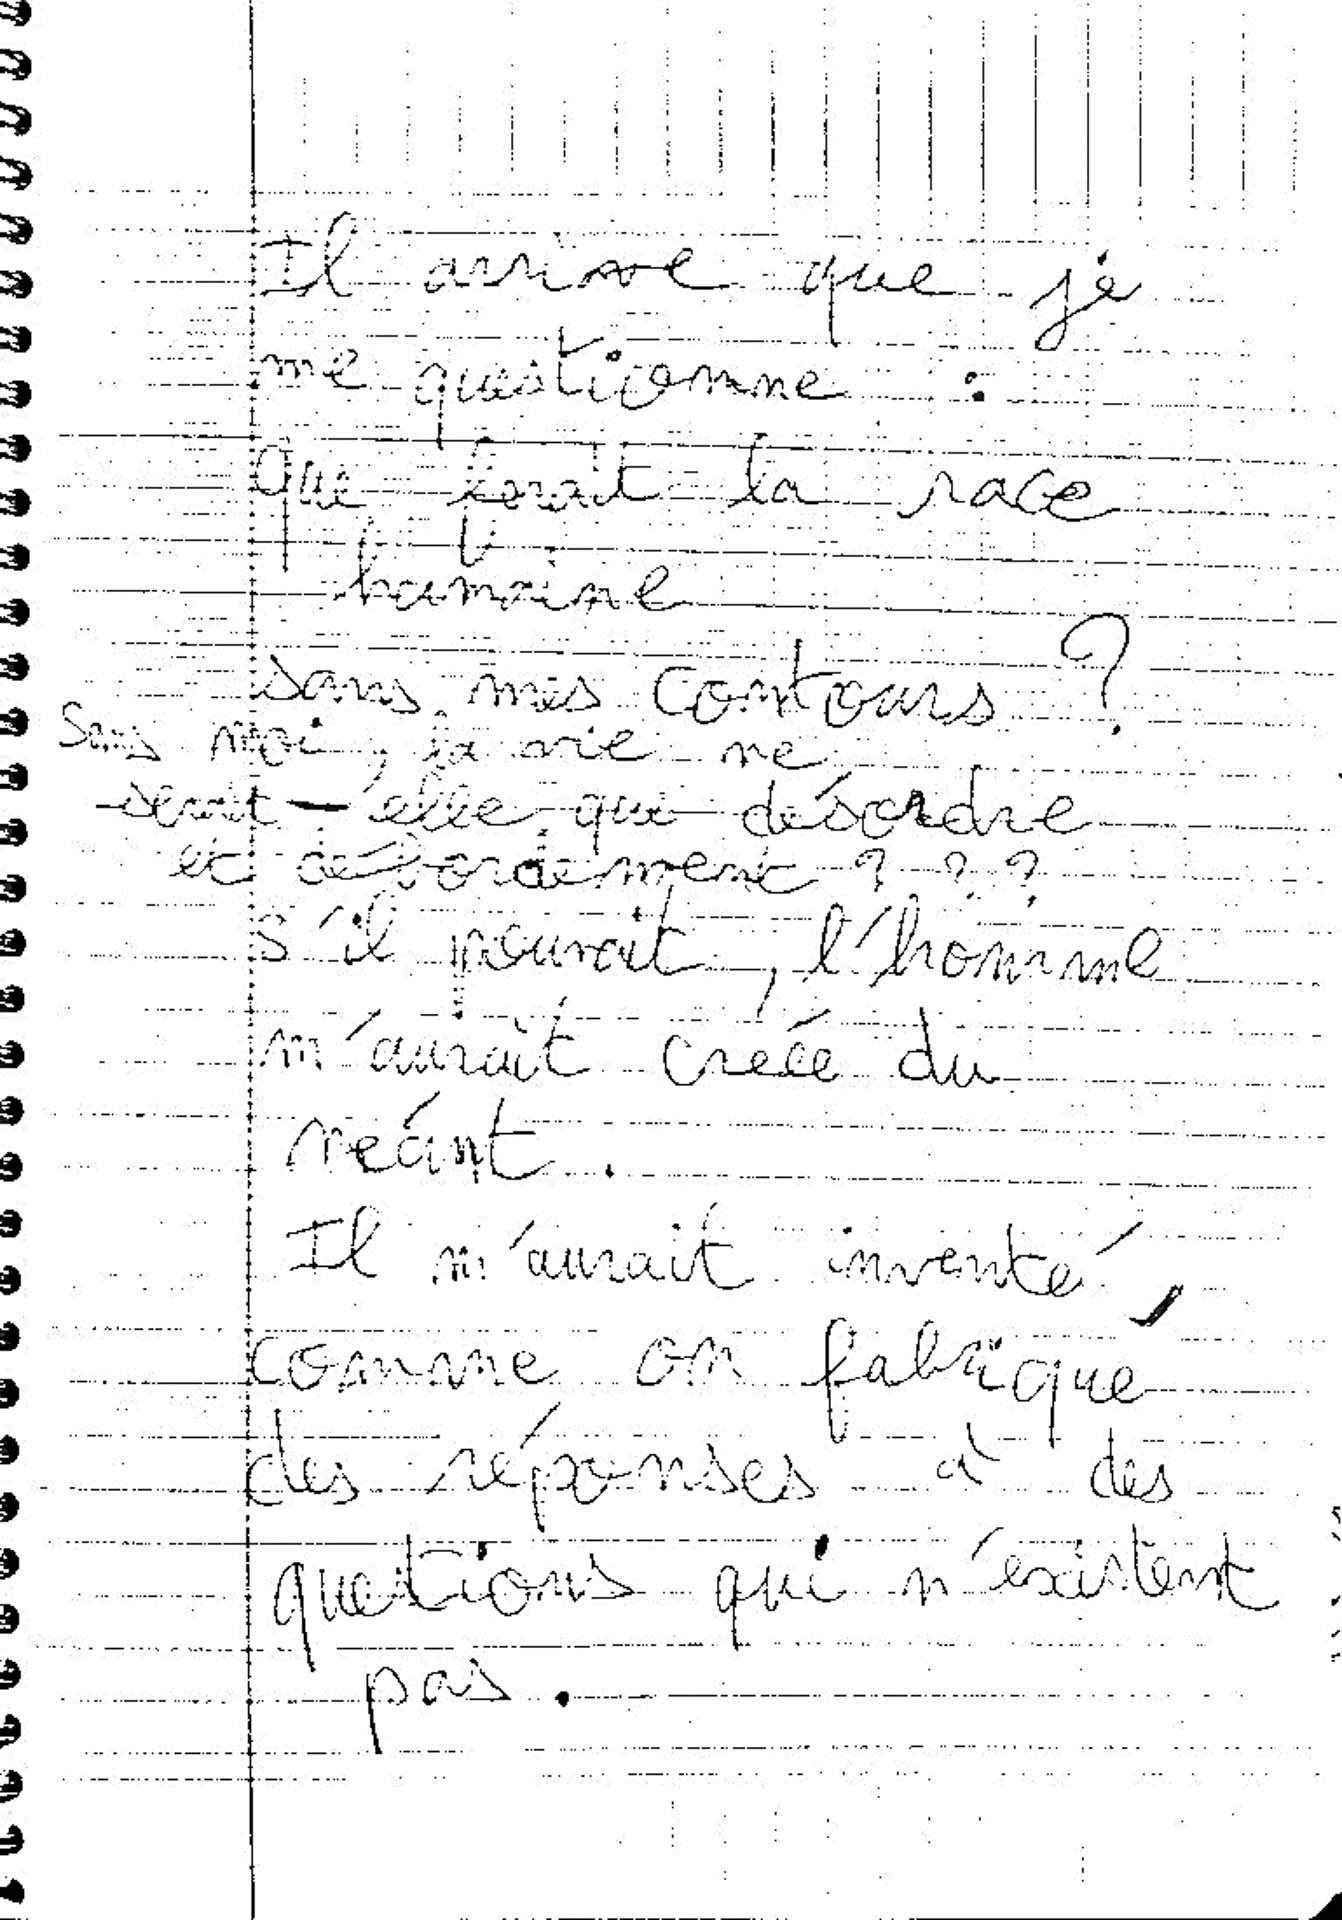 Il arrive que je
me questionne :
que ferait la race
humaine
sans mes contours ?
Sans moi, la vie ne
serait-elle que désordre
et débordement ? ? ?
s'il pouvait, l'homme
m'aurait créée du
néant.
Il m'aurait inventé,
comme on fabrique
des réponses à des
questions qui n'existent
pas.